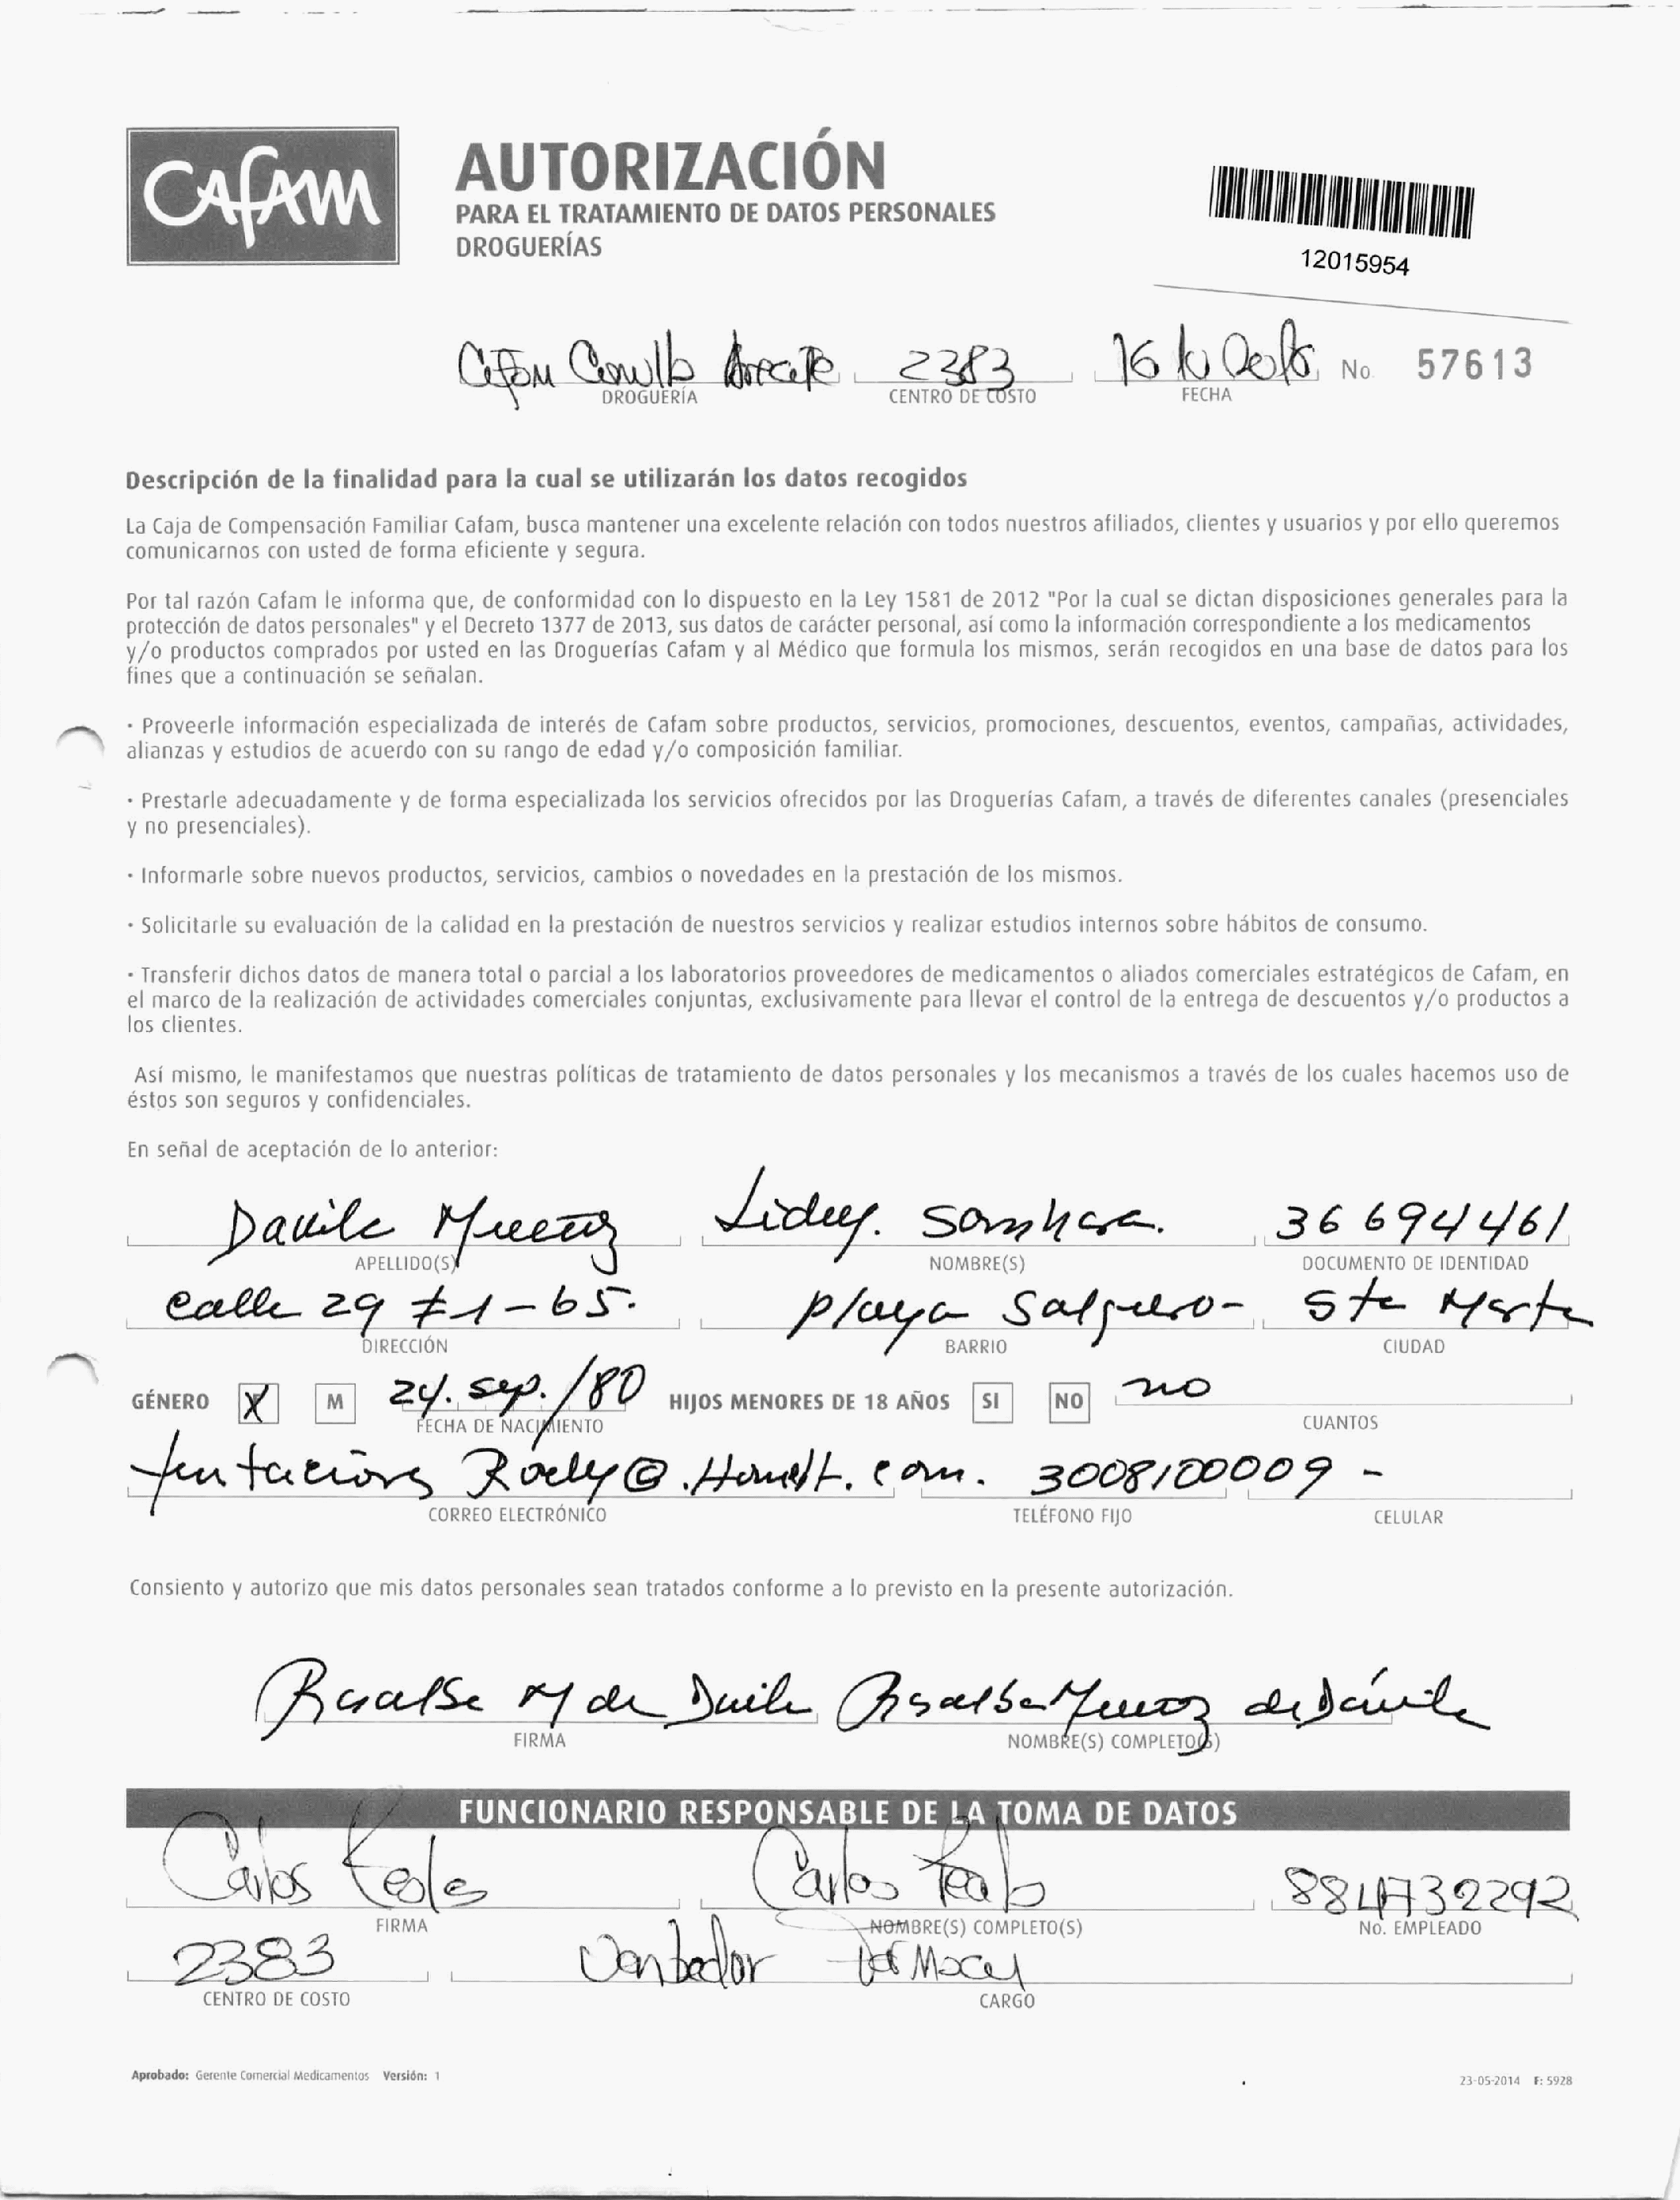 CAFAM
AUTORIZACIÓN
PARA EL TRATAMIENTO DE DATOS PERSONALES
DROGUERÍAS
12015954
2383 16 No. 57613
DROGUERÍA CENTRO DE COSTO FECHA
Descripción de la finalidad para la cual se utilizarán los datos recogidos
La Caja de Compensación Familiar Cafam, busca mantener una excelente relación con todos nuestros afiliados, clientes y usuarios y por ello queremos
comunicarnos con usted de forma eficiente y segura.
Por tal razón Cafam le informa que, de conformidad con lo dispuesto en la Ley 1581 de 2012 "Por la cual se dictan disposiciones generales para la
protección de datos personales" y el Decreto 1377 de 2013, sus datos de carácter personal, así como la información correspondiente a los medicamentos
y/o productos comprados por usted en las Droguerías Cafam y al Médico que formula los mismos, serán recogidos en una base de datos para los
fines que a continuación se señalan.
· Proveerle información especializada de interés de Cafam sobre productos, servicios, promociones, descuentos, eventos, campañas, actividades,
alianzas y estudios de acuerdo con su rango de edad y/o composición familiar.
· Prestarle adecuadamente y de forma especializada los servicios ofrecidos por las Droguerías Cafam, a través de diferentes canales (presenciales
y no presenciales).
· Informarle sobre nuevos productos, servicios, cambios o novedades en la prestación de los mismos.
· Solicitarle su evaluación de la calidad en la prestación de nuestros servicios y realizar estudios internos sobre hábitos de consumo.
· Transferir dichos datos de manera total o parcial a los laboratorios proveedores de medicamentos o aliados comerciales estratégicos de Cafam, en
el marco de la realización de actividades comerciales conjuntas, exclusivamente para llevar el control de la entrega de descuentos y/o productos a
los clientes.
Así mismo, le manifestamos que nuestras políticas de tratamiento de datos personales y los mecanismos a través de los cuales hacemos uso de
éstos son seguros y confidenciales.
En señal de aceptación de lo anterior:
Davila Muñoz 36694461
APELLIDO(S) NOMBRE(S) DOCUMENTO DE IDENTIDAD
calle 29 # 1-65. playa Salguero- Sta Marta
DIRECCIÓN BARRIO CIUDAD
GÉNERO X M 24. sep./80 HIJOS MENORES DE 18 AÑOS SI NO no
FECHA DE NACIMIENTO CUANTOS
3008100009 -
CORREO ELECTRÓNICO TELÉFONO FIJO CELULAR
Consiento y autorizo que mis datos personales sean tratados conforme a lo previsto en la presente autorización.
M de Davila Muñoz de Dávila
FIRMA NOMBRE(S) COMPLETO(S)
FUNCIONARIO RESPONSABLE DE LA TOMA DE DATOS
Carlos Carlos
FIRMA NOMBRE(S) COMPLETO(S) No. EMPLEADO
2383
CENTRO DE COSTO CARGO
Aprobado: Gerente Comercial Medicamentos Versión: 1
23-05-2014 F: 5928